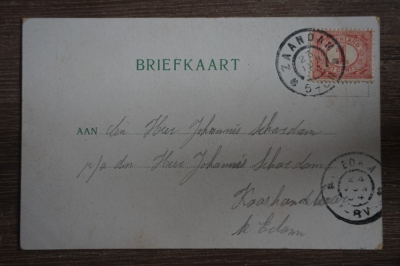 BRIEFKAART
ZAANDAM
AAN den Heer Johannis Schardam
p/a den Heer Johannis Schardam
Kaashandelaar
te Edam
EDAM